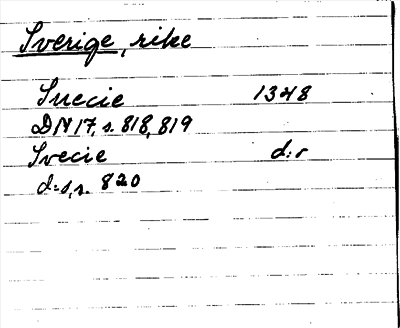 Sverige, rike
Suecie 1348
DN 17, s. 818, 819
Svecie d:o
d:o, s. 820